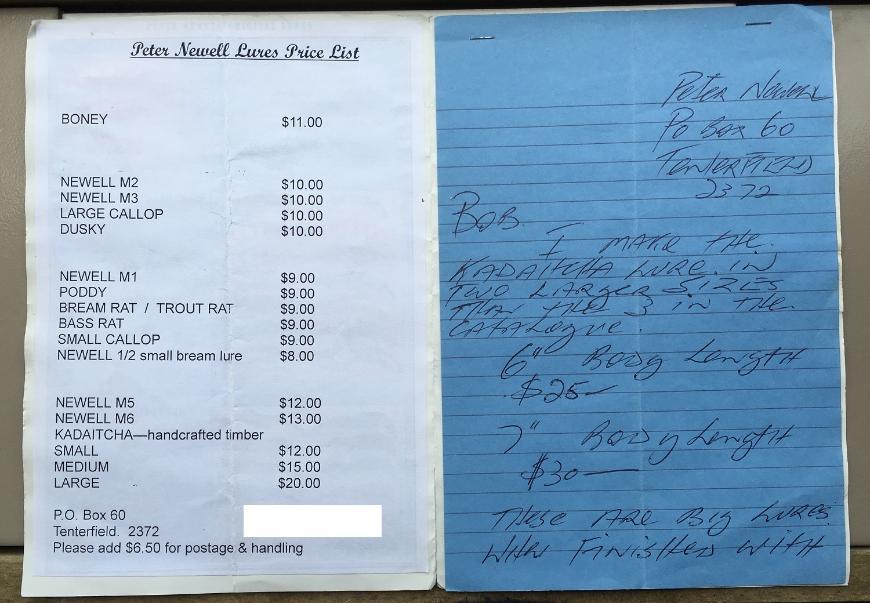 Peter Newell Lures Price List
BONEY $11.00
NEWELL M2 $10.00
NEWELL M3 $10.00
LARGE CALLOP $10.00
DUSKY $10.00
NEWELL M1 $9.00
PODDY $9.00
BREAM RAT / TROUT RAT $9.00
BASS RAT $9.00
SMALL CALLOP $9.00
NEWELL 1/2 small bream lure $8.00
NEWELL M5 $12.00
NEWELL M6 $13.00
KADAITCHA—handcrafted timber
SMALL $12.00
MEDIUM $15.00
LARGE $20.00
P.O. Box 60
Tenterfield. 2372
Please add $6.50 for postage & handling
Peter Newell
Po Box 60
TenterFIELD
2372
BOB
I MAKE THE
KADAITCHA LURE IN
TWO LARGER SIZES
THAN THE 3 IN THE
CATALOGUE.
6" BODY LENGTH
$25—
7" BODY LENGTH
$30—
THESE ARE BIG LURES
WHEN FINISHED WITH